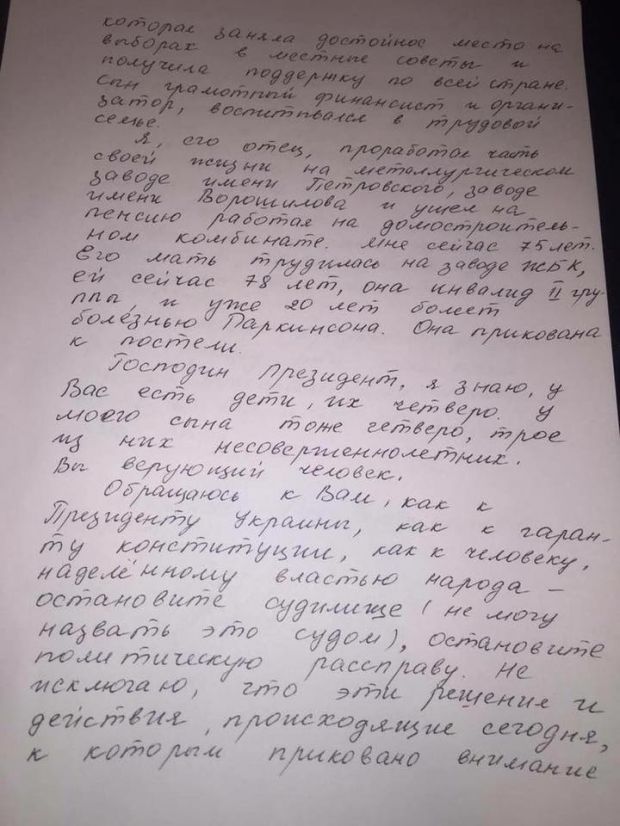 которая заняла достойное место на
выборах в местные советы и
получила поддержку по всей стране.
Сын грамотный финансист и органи-
затор, воспитывался в трудовой
семье.
Я, его отец, проработал часть
своей жизни на металлургическом
заводе имени Петровского, заводе
имени Ворошилова и ушел на
пенсию работая на домостроитель-
ном комбинате. Мне сейчас 75 лет.
Его мать трудилась на заводе ЖБК,
ей сейчас 78 лет, она инвалид II гру-
ппы, и уже 20 лет болеет
болезнью Паркинсона. Она прикована
к постели.
Господин Президент, я знаю, у
Вас есть дети, их четверо. У
моего сына тоже четверо, трое
из них несовершеннолетних.
Вы верующий человек.
Обращаюсь к Вам, как к
Президенту Украины, как к гаран-
ту конституции, как к человеку,
наделённому властью народа –
остановите судилище (не могу
назвать это судом), остановите
политическую расправу. Не
исключаю, что эти решения и
действия, происходящие сегодня,
к которым приковано внимание